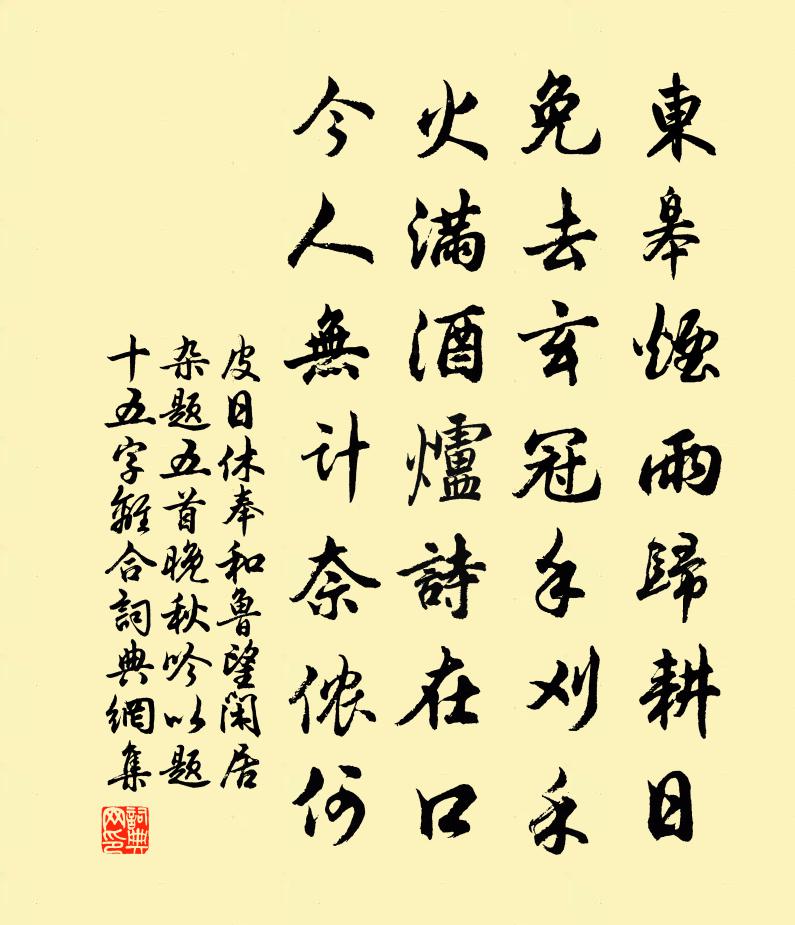 東皋煙雨歸耕日
免去玄冠手刈禾
火滿酒爐詩在口
今人無計奈侬何
皮日休奉和魯望閑居
杂题五首晚秋吟以题
十五字離合詞典網集
詞典网印